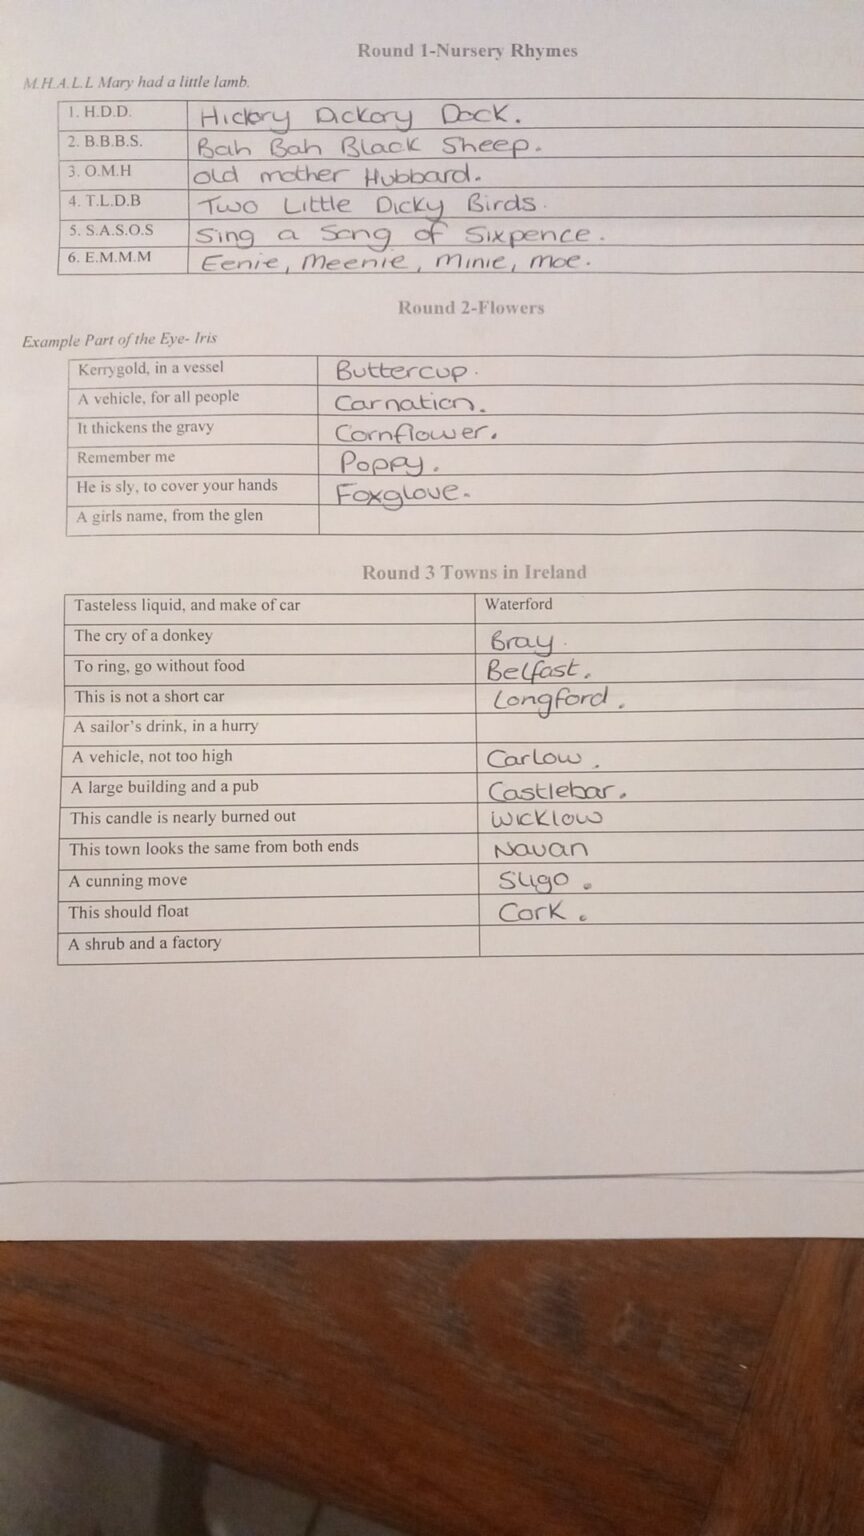 Round 1-Nursery Rhymes
M.H.A.L.L Mary had a little lamb.
1. H.D.D. Hickory Dickory Dock.
2. B.B.B.S. Bah Bah Black Sheep.
3. O.M.H old mother Hubbard.
4. T.L.D.B Two Little Dicky Birds.
5. S.A.S.O.S Sing a Song of Sixpence.
6. E.M.M.M Eenie, Meenie, Minie, moe.
Round 2-Flowers
Example Part of the Eye- Iris
Kerrygold, in a vessel Buttercup.
A vehicle, for all people Carnation.
It thickens the gravy Cornflower.
Remember me Poppy.
He is sly, to cover your hands Foxglove.
A girls name, from the glen
Round 3 Towns in Ireland
Tasteless liquid, and make of car Waterford
The cry of a donkey Bray.
To ring, go without food Belfast.
This is not a short car Longford.
A sailor's drink, in a hurry
A vehicle, not too high Carlow.
A large building and a pub Castlebar.
This candle is nearly burned out Wicklow
This town looks the same from both ends Navan
A cunning move Sligo.
This should float Cork.
A shrub and a factory